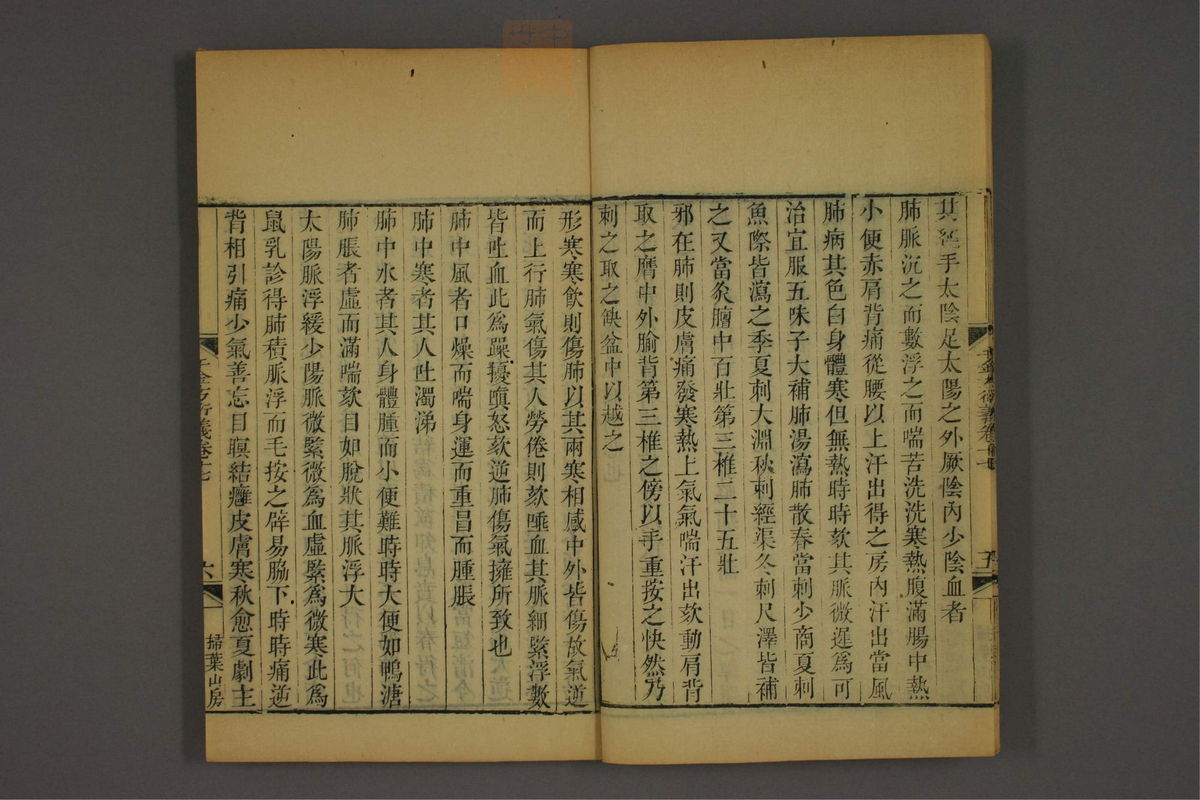 其經手太陰足太陽之外厥陰內少陰血者
肺脈沉之而數浮之而喘苦洗洗寒熱腹滿腸中熱
小便赤肩背痛從腰以上汗出得之房內汗出當風
肺病其色白身體寒但無熱時時欬其脈微遲為可
治宜服五味子大補肺湯瀉肺散春當刺少商夏刺
魚際皆瀉之季夏刺大淵秋刺經渠冬刺尺澤皆補
之又當灸膻中百壯第三椎二十五壯
邪在肺則皮膚痛發寒熱上氣氣喘汗出欬動肩背
取之膺中外腧背第三椎之傍以手重按之快然乃
刺之取之缺盆中以越之
形寒寒飲則傷肺以其兩寒相感中外皆傷故氣逆
而上行肺氣傷其人勞倦則欬唾血其脈細緊浮數
皆吐血此為躁擾嗔怒欬逆肺傷氣擁所致也
肺中風者口燥而喘身運而重冒而腫脹
肺中寒者其人吐濁涕
肺中水者其人身體腫而小便難時時大便如鴨溏
肺脹者虛而滿喘欬目如脫狀其脈浮大
太陽脈浮緩少陽脈微緊微為血虛緊為微寒此為
鼠乳診得肺積脈浮而毛按之辟易脇下時時痛逆
背相引痛少氣善忘目瞑結癰皮膚寒秋愈夏劇主
千金方衍義卷十七
六
掃葉山房